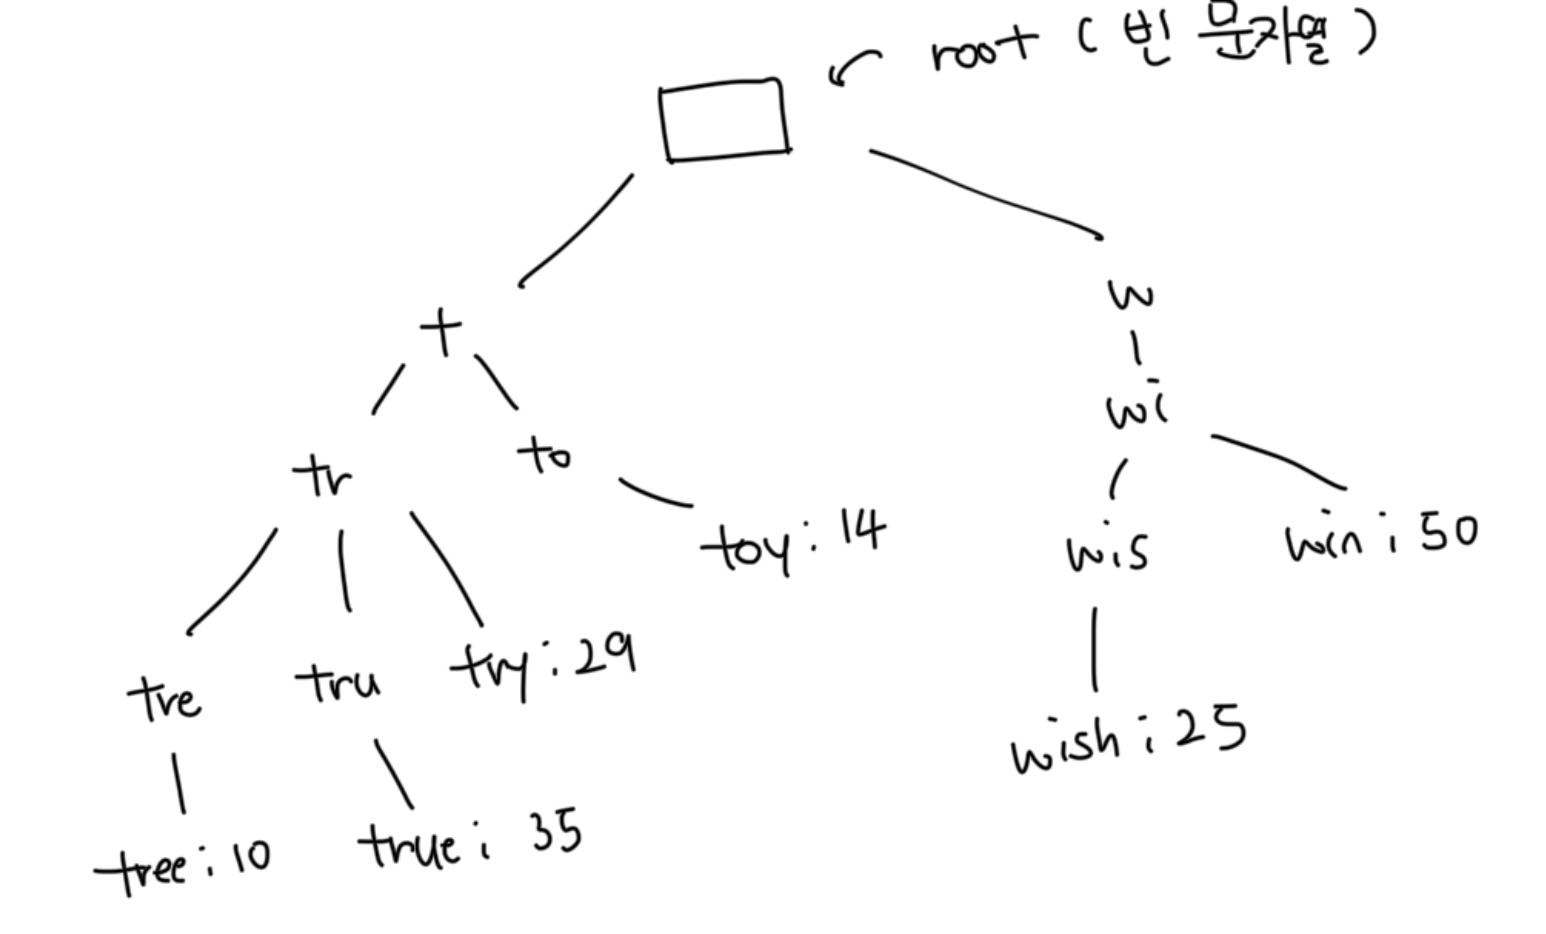 root ( 빈 문자열 )
t
w
tr
to
wi
toy : 14
wis
win : 50
tre
tru
try : 29
wish : 25
tree : 10
true : 35